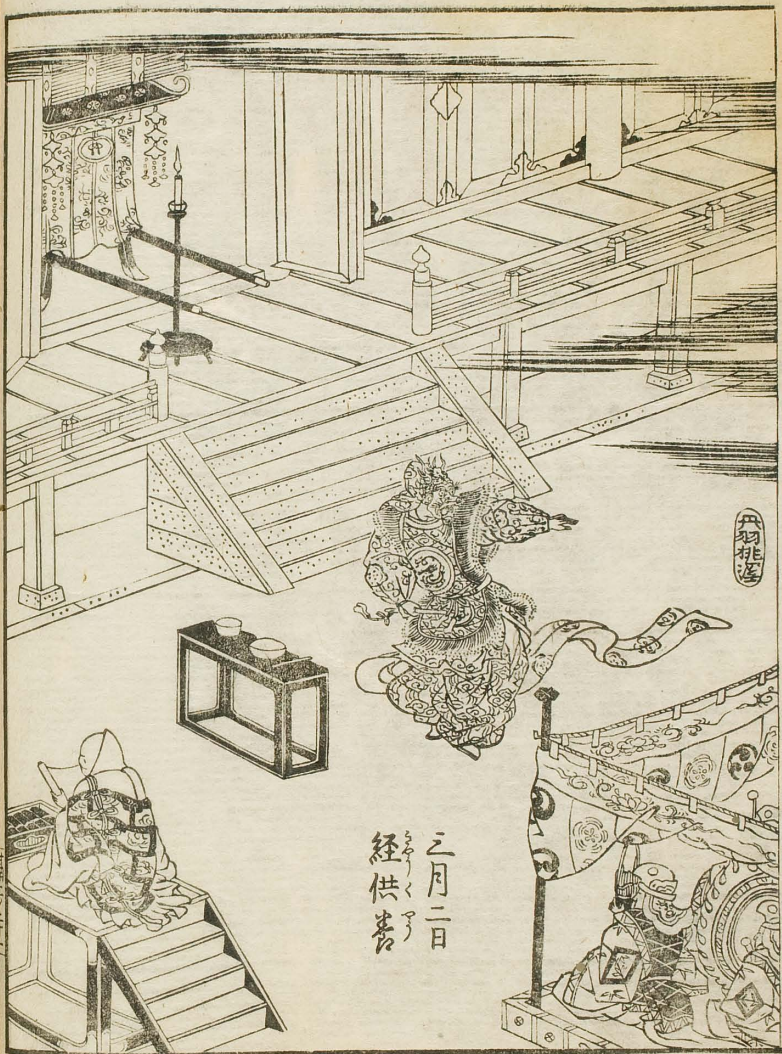 丹羽桃溪
三月二日
きやうくやう
経供養